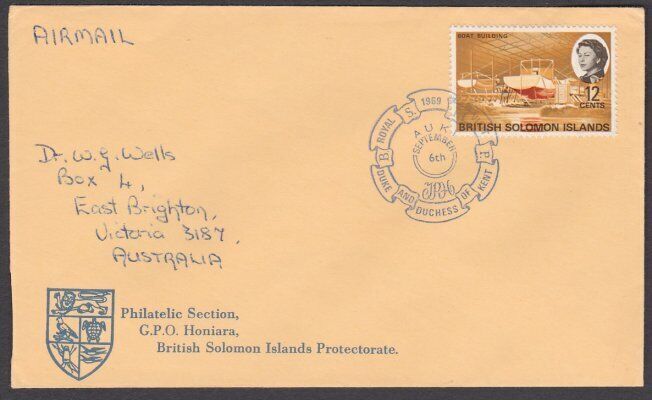 AIRMAIL
BOAT BUILDING
12
CENTS
BRITISH SOLOMON ISLANDS
B. S. P.
ROYAL
1969
AUKI
SEPTEMBER
6th
DUKE AND DUCHESS OF KENT
Dr. W. G. Wells
Box 4,
East Brighton,
Victoria 3187,
AUSTRALIA
Philatelic Section,
G.P.O. Honiara,
British Solomon Islands Protectorate.